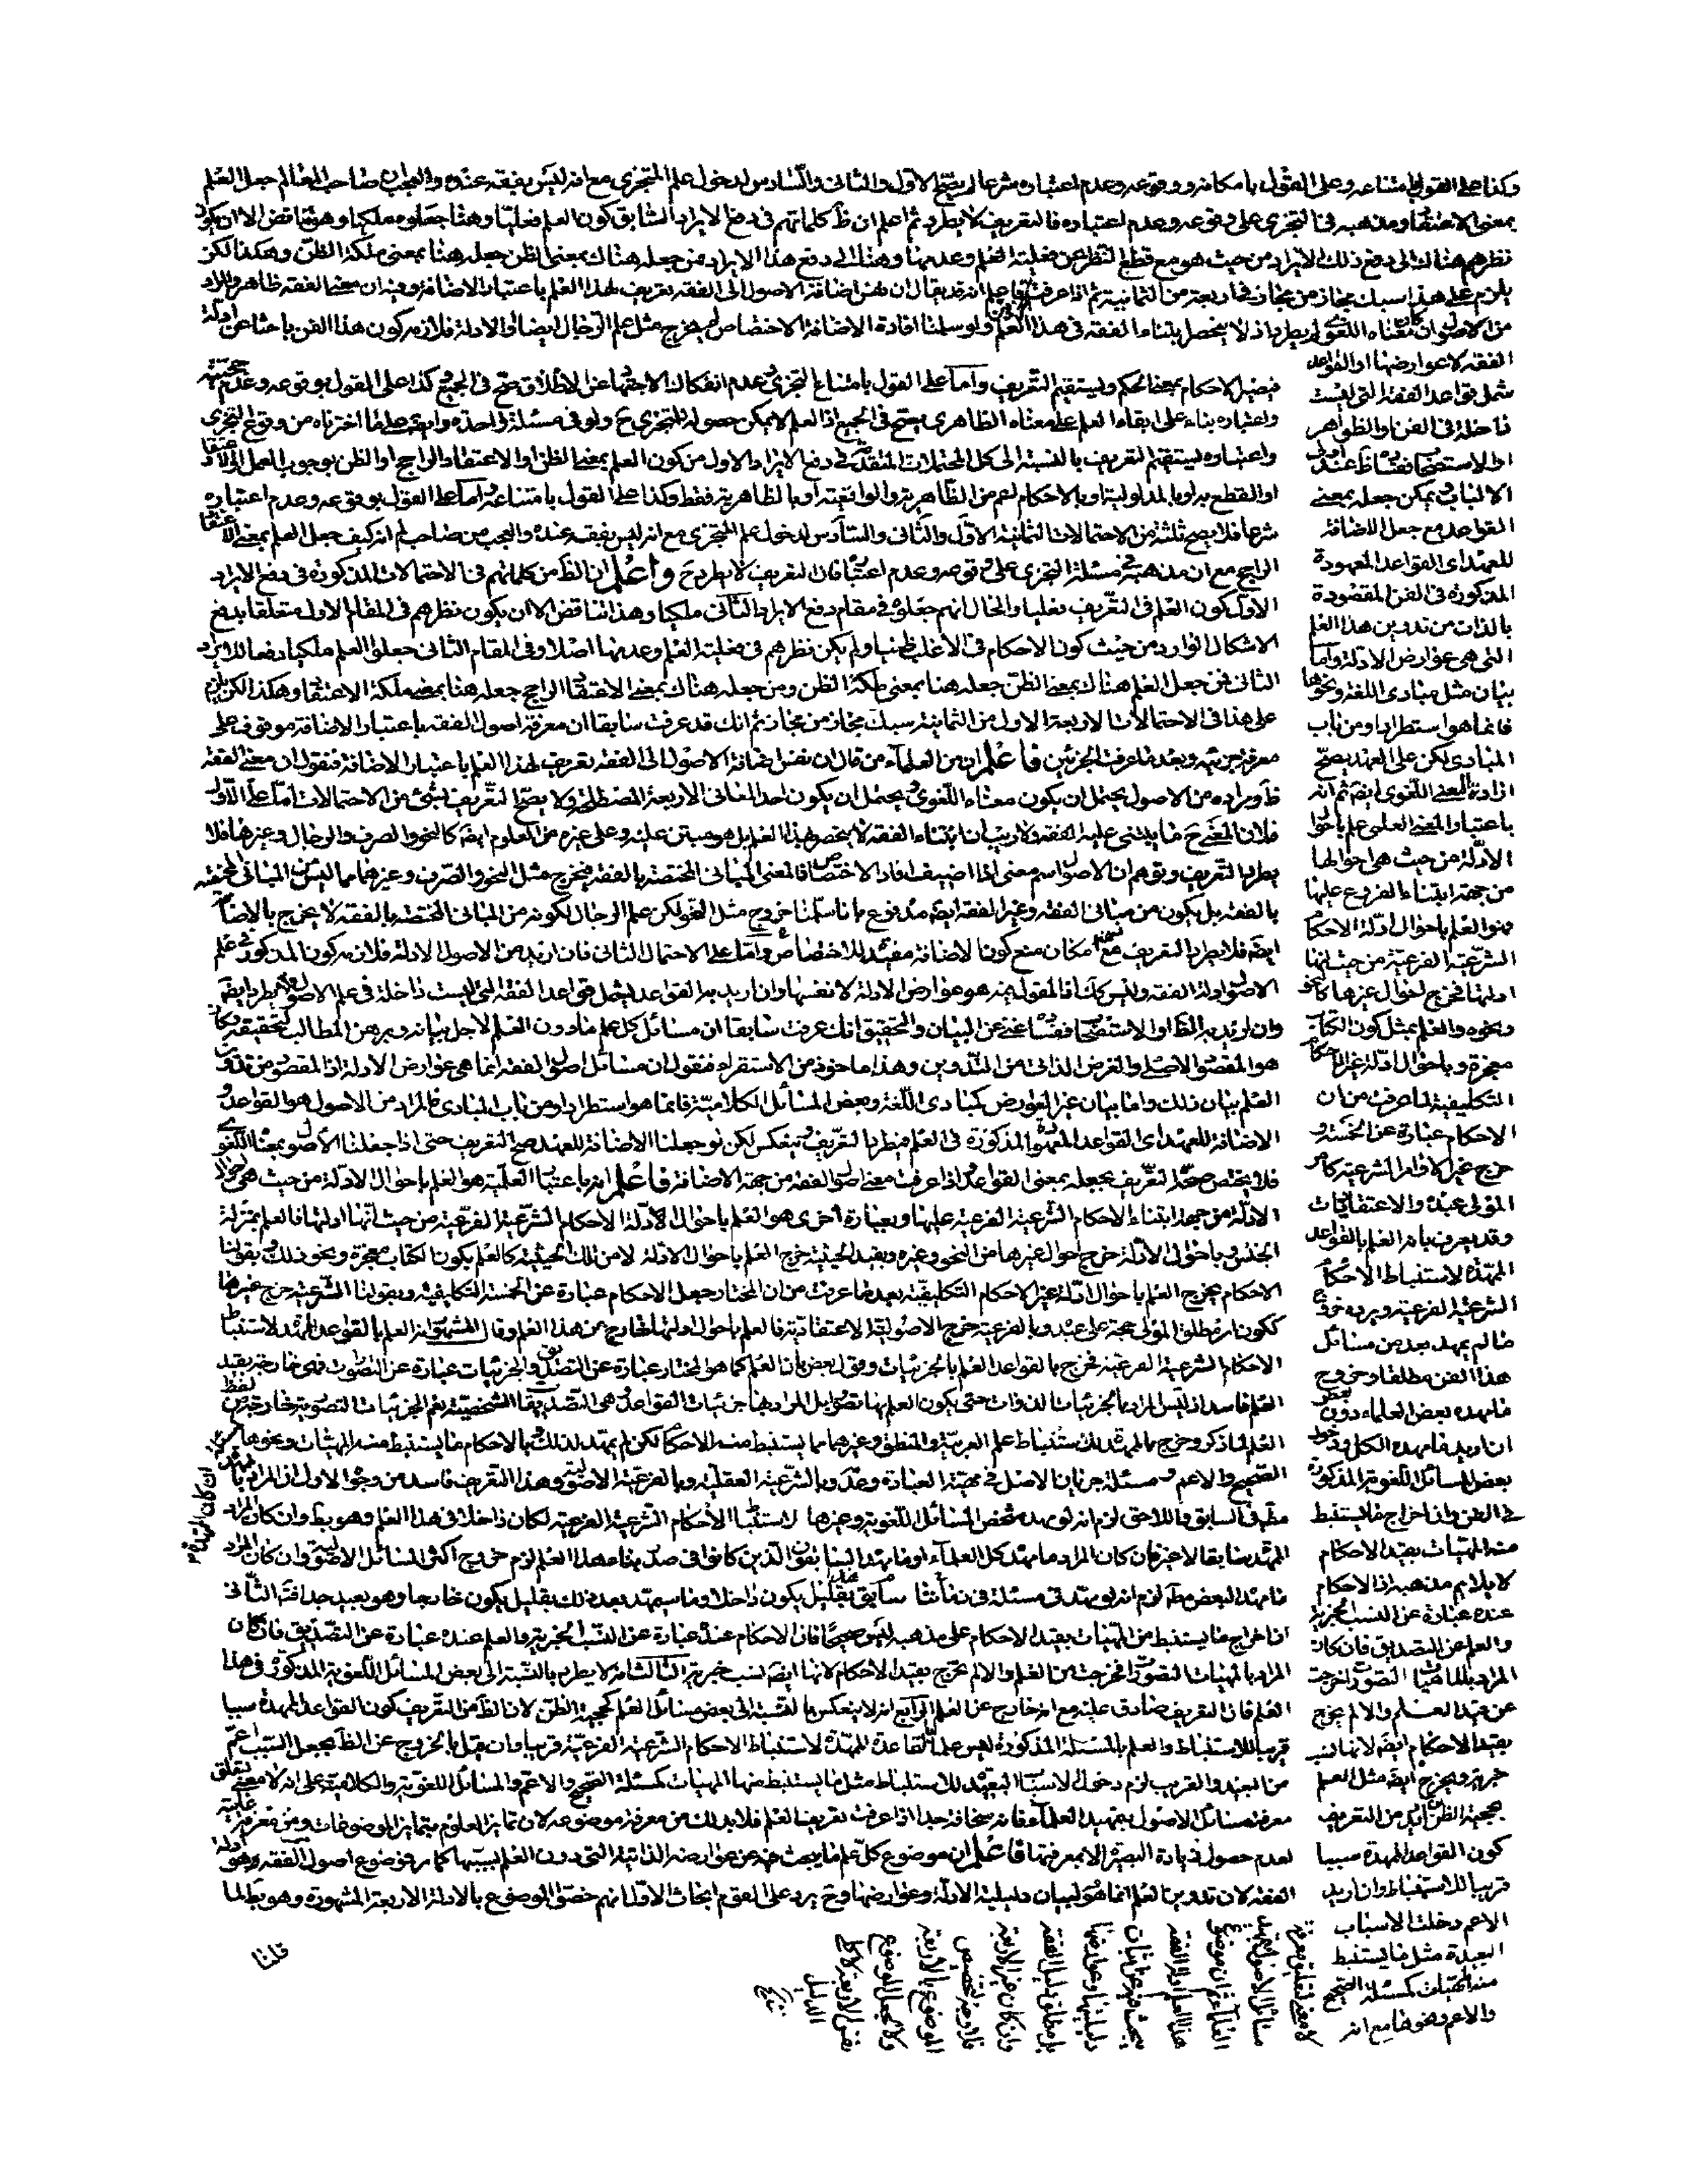 وكذا على القول بامتناعه وعلى القول بامكانه ووقوعه وعدم اعتباره شرعا لم يصح الاول والثانى والسادس لدخول علم المتجزى مع انه ليس بفقه عنده والعجب ان صاحب المعالم جعل العلم
بمعنى الاعتقاد ومذهبه فى التجزى على وقوعه وعدم اعتباره فالتعريف لا يطرد ثم اعلم ان ظ كلماتهم فى دفع الايراد السابق كون العلم فعليا وهنا جعلوه ملكيا وهنا تناقض الا ان يكون
نظرهم هناك الى دفع ذلك الايراد من حيث هو مع قطع النظر عن فعلية العلم وعدمها وهناك الى دفع هذا الايراد فمن جعله هناك بمعنى الظن جعله هنا بمعنى ملكة الظن وهكذا لكن
يلزم على هذا سبك مجاز من مجاز فى اربعة من الثمانية ثم اذا عرفت فاعلم انه قد يقال ان نفس اضافة الاصول الى الفقه تعريف لهذا العلم باعتبار الاضافة وفيه ان معنى الفقه ظاهر والمراد
من الاصول ان كان معناه اللغوى لم يطرد اذ لا ينحصر ابتناء الفقه فى هذا العلم ولو سلمنا افادة الاضافة الاختصاص لم يخرج مثل علم الرجال ايضا او الادلة فلازمه كون هذا الفن باحثا عن ادلة
الفقه لا عوارضها او القواعد
شمل قواعد الفقه التى ليست
داخلة فى الفن او الظواهر
او الاستصحاب ففساده عند اولى
الالباب ويمكن جعله بمعنى
القواعد مع جعل الاضافة
للعهد اى القواعد المعهودة
المذكورة فى الفن المقصودة
بالذات من تدوين هذا العلم
التى هى عوارض الادلة واما
بيان مثل مبادى اللغة ونحوها
فانما هو استطراد ومن باب
المبادى لكن على العهد يصح
ارادة المعنى اللغوى ايضا ثم انه
باعتبار المعنى العلمى علم باحوال
الادلة من حيث هى احوالها
من جهة ابتناء الفروع عليها
فهو العلم باحوال ادلة الاحكام
الشرعية الفرعية من حيث انها
ادلتها فخرج احوال غيرها كالنحو
ونحوه والعلم بمثل كون الكتاب
معجزة وباحوال ادلة غير الاحكام
التكليفية لما عرفت من ان
الاحكام عبارة عن الخمسة و
خرج بغير الاوامر الشرعية كامر
المولى عبده والاعتقاديات
وقد يعرف بانه العلم بالقواعد
الممهدة لاستنباط الاحكام
الشرعية الفرعية ويرد خروج
ما لم يمهد بعد من مسائل
هذا الفن مطلقا وخروج
ما مهده بعض العلماء دون بعض
ان اريد ما مهده الكل ودخول
بعض المسائل اللغوية المذكورة
فى الفن وان اخراج ما يستنبط
منه المهيات بقيد الاحكام
لا يلايم مذهبه اذ الاحكام
عنده عبارة عن النسب الخبرية
والعلم عن التصديق فان كان
المراد بالماهيات التصورات خرجت
عن قيد العلم والا لم يخرج
بقيد الاحكام ايضا لانها نسب
خبرية ويخرج ايضا مثل العلم
بحجية الظن لان من التعريف
كون القواعد الممهدة سببا
قريبا للاستنباط وان اريد
الاعم دخلت الاسباب
البعيدة مثل ما يستنبط
منه المهيات كمسئلة الصحيح
والاعم ونحوها مع انه
فيصير الاحكام بمعنى الحكم ويستقيم التعريف واما على القول بامتناع التجزى وعدم انفكاك الاجتهاد عن الاطلاق صح فى الجميع كذا على القول بوقوعه وعدم حجيته
واعتباره بناء على ابقاء العلم على معناه الظاهرى يصح فى الجميع اذ العلم لا يمكن حصوله للمتجزى ح ولو فى مسئلة واحدة وايضا على ما اخترناه من وقوع التجزى
واعتباره ليستقيم التعريف بالنسبة الى كل المحتملات المتقدمة فى دفع الايراد الاول من كون العلم بمعنى الظن او الاعتقاد الراجح او الظن بوجوب العمل او الاعتقاد
او القطع به او بالمدلولية او بالاحكام اعم من الظاهرية والواقعية او بالظاهرية فقط وكذا على القول بامتناعه واما على القول بوقوعه وعدم اعتباره
شرعا فلا يصح ثلثة من الاحتمالات الثمانية الاول والثانى والسادس لدخول علم المتجزى مع انه ليس بفقه عنده والعجب من صاحب لم انه كيف جعل العلم بمعنى الاعتقاد
الراجح مع ان مذهبه فى مسئلة التجزى على وقوعه وعدم اعتباره فان التعريف لا يطرد ح واعلم ان الظ من كلماتهم فى الاحتمالات المذكورة فى دفع الايراد
الاول كون العلم فى التعريف فعليا والحال انهم جعلوه فى مقام دفع الايراد الثانى ملكيا وهذا تناقض الا ان يكون نظرهم فى المقام الاول متعلقا بدفع
الاشكال الوارد من حيث كون الاحكام فى الاغلب ظنيا ولم يكن نظرهم فى فعلية العلم وعدمها اصلا وفى المقام الثانى جعلوا العلم ملكيا دفعا للايراد
الثانى فمن جعل العلم هناك بمعنى الظن جعله هنا بمعنى ملكة الظن ومن جعله هناك بمعنى الاعتقاد الراجح جعله هنا بمعنى ملكة الاعتقاد وهكذا لكن يلزم
على هذا فى الاحتمالات الاربعة الاول من الثمانية سبك مجاز من مجاز ثم انك قد عرفت سابقا ان معرفة اصول الفقه باعتبار الاضافة موقوف على
معرفة جزئيه وبعد ما عرفت الجزئين فاعلم ان من العلماء من قال ان نفس اضافة الاصول الى الفقه تعريف لهذا العلم باعتبار الاضافة فنقول ان معنى الفقه
ظ ومراده من الاصول يحتمل ان يكون معناه اللغوى ويحتمل ان يكون احد المعانى الاربعة المصطلحة ولا يصح التعريف بشئ من الاحتمالات اما على الاول
فلان المعنى ح ما يبتنى عليه الفقه ولا ريب ان ابتناء الفقه لا ينحصر بهذا العلم بل هو مبتن عليه وعلى غيره من العلوم ايضا كالنحو والصرف والرجال وغيرها فلا
يطرد التعريف وتوهم ان الاصول اسم معنى اذا اضيف افاد الاختصاص فالمعنى المبانى المختصة بالفقه فيخرج مثل النحو والصرف وغيرهما مما ليس من المبانى المختصة
بالفقه بل يكون من مبانى الفقه وغير الفقه ايضا مدفوع بانا سلمنا خروج مثل النحو لكن علم الرجال لكونه من المبانى المختصة بالفقه لا يخرج بالاضافة
ايضا فلا يطرد التعريف مع امكان منع كون الاضافة مفيدا للاختصاص واما على الاحتمال الثانى فان اريد من الاصول الادلة فلازمه كون المذكور فى علم
الاصول ادلة الفقه وليس كك اذ المقول فيه هو عوارض الادلة لا نفسها وان اريد به القواعد يشمل قواعد الفقه التى ليست داخلة فى علم الاصول فلا يطرد ايضا
وان اريد به الظاهر او الاستصحاب ففساده غنى عن البيان والتحقيق انك عرفت سابقا ان مسائل كل علم ما دون العلم لاجل بيانه ويبرهن المطالب لتحقيقه وكان
هو المقصود الاصلى والغرض الذاتى من التدوين وهذا ماخوذ من الاستقراء فنقول ان مسائل اصول الفقه انما هى عوارض الادلة اذ المقصود من تدوين
العلم بيان ذلك واما بيان غير العوارض كمبادى اللغة وبعض المسائل الكلامية فانما هو استطراد او من باب المبادى فالمراد من الاصول هو القواعد و
الاضافة للعهد اى القواعد المعهودة المذكورة فى العلم فيطرد التعريف وينعكس لكن لو جعلنا الاضافة للعهد صح التعريف حتى اذا جعلنا الاصول بمعناه اللغوى
فلا يختص صحة التعريف بجعله بمعنى القواعد اذا عرفت معنى اصول الفقه من جهة الاضافة فاعلم انه باعتبار العلمية هو العلم باحوال الادلة من حيث هى احوال
الادلة من جهة ابتناء الاحكام الشرعية الفرعية عليها وبعبارة اخرى هو العلم باحوال الادلة الاحكام الشرعية الفرعية من حيث انها ادلتها فالعلم بمنزلة
الجنس وباحوال الادلة خرج احوال غيرها من النحو وغيره وبقيد الحيثية خرج العلم باحوال الادلة لا من تلك الحيثية كالعلم بكون الكتاب معجزة ونحو ذلك وبقولنا
الاحكام يخرج العلم باحوال ادلة غير الاحكام التكليفية بعد ما عرفت من ان المختار جعل الاحكام عبارة عن الخمسة التكليفية وبقولنا الشرعية خرج غيرها
ككون امر مطلق المولى حجة على عبده وبالفرعية خرج الاصولية الاعتقادية فالعلم باحوال ادلتها خارج من هذا العلم وقال المشهور انه العلم بالقواعد الممهدة لاستنباط
الاحكام الشرعية الفرعية فخرج بالقواعد العلم بالجزئيات وقول بعض بان العلم كما هو المختار عبارة عن التصديق والجزئيات عبارة عن التصورات فهى خارجة بقيد
العلم فاسد اذ ليس المراد بالجزئيات الذوات حتى يكون العلم بها تصورا بل المراد بها جزئيات القواعد وهى التصديقات الشخصية نعم الجزئيات التصورية خارجة من لفظ
العلم لما ذكر وخرج بالممهدة لذلك استنباط علم العربية والمنطق وغيرهما مما يستنبط منه الاحكام لكن لم يمهد لذلك وبالاحكام ما يستنبط منه المهيات ونحوها كمسئلة
الصحيح والاعم ومسئلة جريان الاصل فى مهية العبادة وعدمه وبالشرعية العقلية وبالفرعية الاصولية وهذا التعريف فاسد من وجوه الاول ان المراد بالممهدة
ان كان الممهدة
مط فى السابق واللاحق لزم انه لو مهد شخص المسائل اللغوية وغيرها لاستنباط الاحكام الشرعية الفرعية لكان داخلا فى هذا العلم وهو بط وان كان المراد
الممهد سابقا لا غير فان كان المراد ما مهد كل العلماء او ما مهد السابقون الذين كانوا فى صدد بناء هذا العلم لزم خروج اكثر المسائل الاصولية وان كان المراد
ما مهد البعض مط لزم انه لو مهد فى مسئلة فى زماننا سابق بقليل يكون داخلا وما سيمهد بعد ذلك بقليل يكون خارجا وهو بعيد جدا الثانى
ان اخراج ما يستنبط من المهيات بقيد الاحكام على مذهبه ليس صحيحا فان الاحكام عنده عبارة عن النسب الخبرية والعلم عنده عبارة عن التصديق فان كان
المراد بالمهيات التصورات فخرجت من العلم والا لم يخرج بقيد الاحكام لانها ايضا نسب خبرية الثالث انه لا يطرد بالنسبة الى بعض المسائل اللغوية المذكورة فى هذا
العلم فان التعريف صادق عليه مع انه خارج عن العلم الرابع انه لا ينعكس بالنسبة الى بعض مسائل العلم كحجية الظن لان الظ من التعريف كون القواعد الممهدة سببا
قريبا للاستنباط والعلم بالمسئلة المذكورة ليس علما بالقاعدة الممهدة لاستنباط الاحكام الشرعية الفرعية قريبا وان قيل بالخروج عن الظ بجعل السبب اعم
من البعيد والقريب لزم دخول الاسباب البعيدة للاستنباط مثل ما يستنبط منها المهيات كمسئلة الصحيح والاعم والمسائل اللغوية والكلامية على انه لا معنى لتعلق
معرفة مسائل الاصول بتمهيد العلماء فانه سخافة جدا اذا عرفت تعريف العلم فلا بد لك من معرفة موضوعه لان تمايز العلوم بتمايز الموضوعات ومن معرفة غايته
لعدم حصول زيادة البصيرة الا بمعرفتها فاعلم ان موضوع كل علم ما يبحث فيه عن عوارضه الذاتية التى دون العلم لبيانها كما مر فموضوع اصول الفقه هو ادلة
الفقه لان تدوين العلم انما هو لبيان دليلية الادلة وعوارضها وح يرد على القوم ابحاث الاول انهم خصوا الموضوع بالادلة الاربعة المشهورة وهو بط لما
لا معنى لتعليق معرفة
مسائل الاصول بتمهيد
العلماء ثم ان موضوع
هذا العلم ادلة الفقه
يبحث فيه عن اثبات
دليليتها وعوارضها
بل مطلق دليل الفقه
وان كان غير الاربعة
فلا وجه لتخصيص
الموضوع بالاربعة
ولا لجعل الموضوع
نفس الاربعة لا كل
الدليل
قلنا